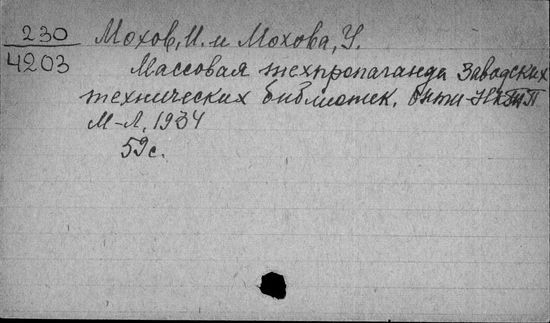 230 Мохов, И. и Мохова, У.
4203 Массовая техпропаганда Заводских
технических библиотек. Онти-НКТП
М-Л, 1934
59 с.